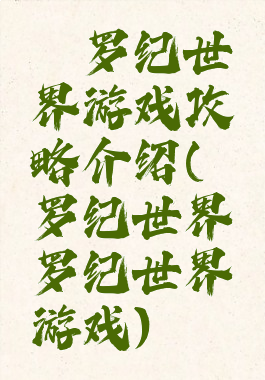 罗纪世
界游戏攻
略介绍(
罗纪世界
罗纪世界
游戏)